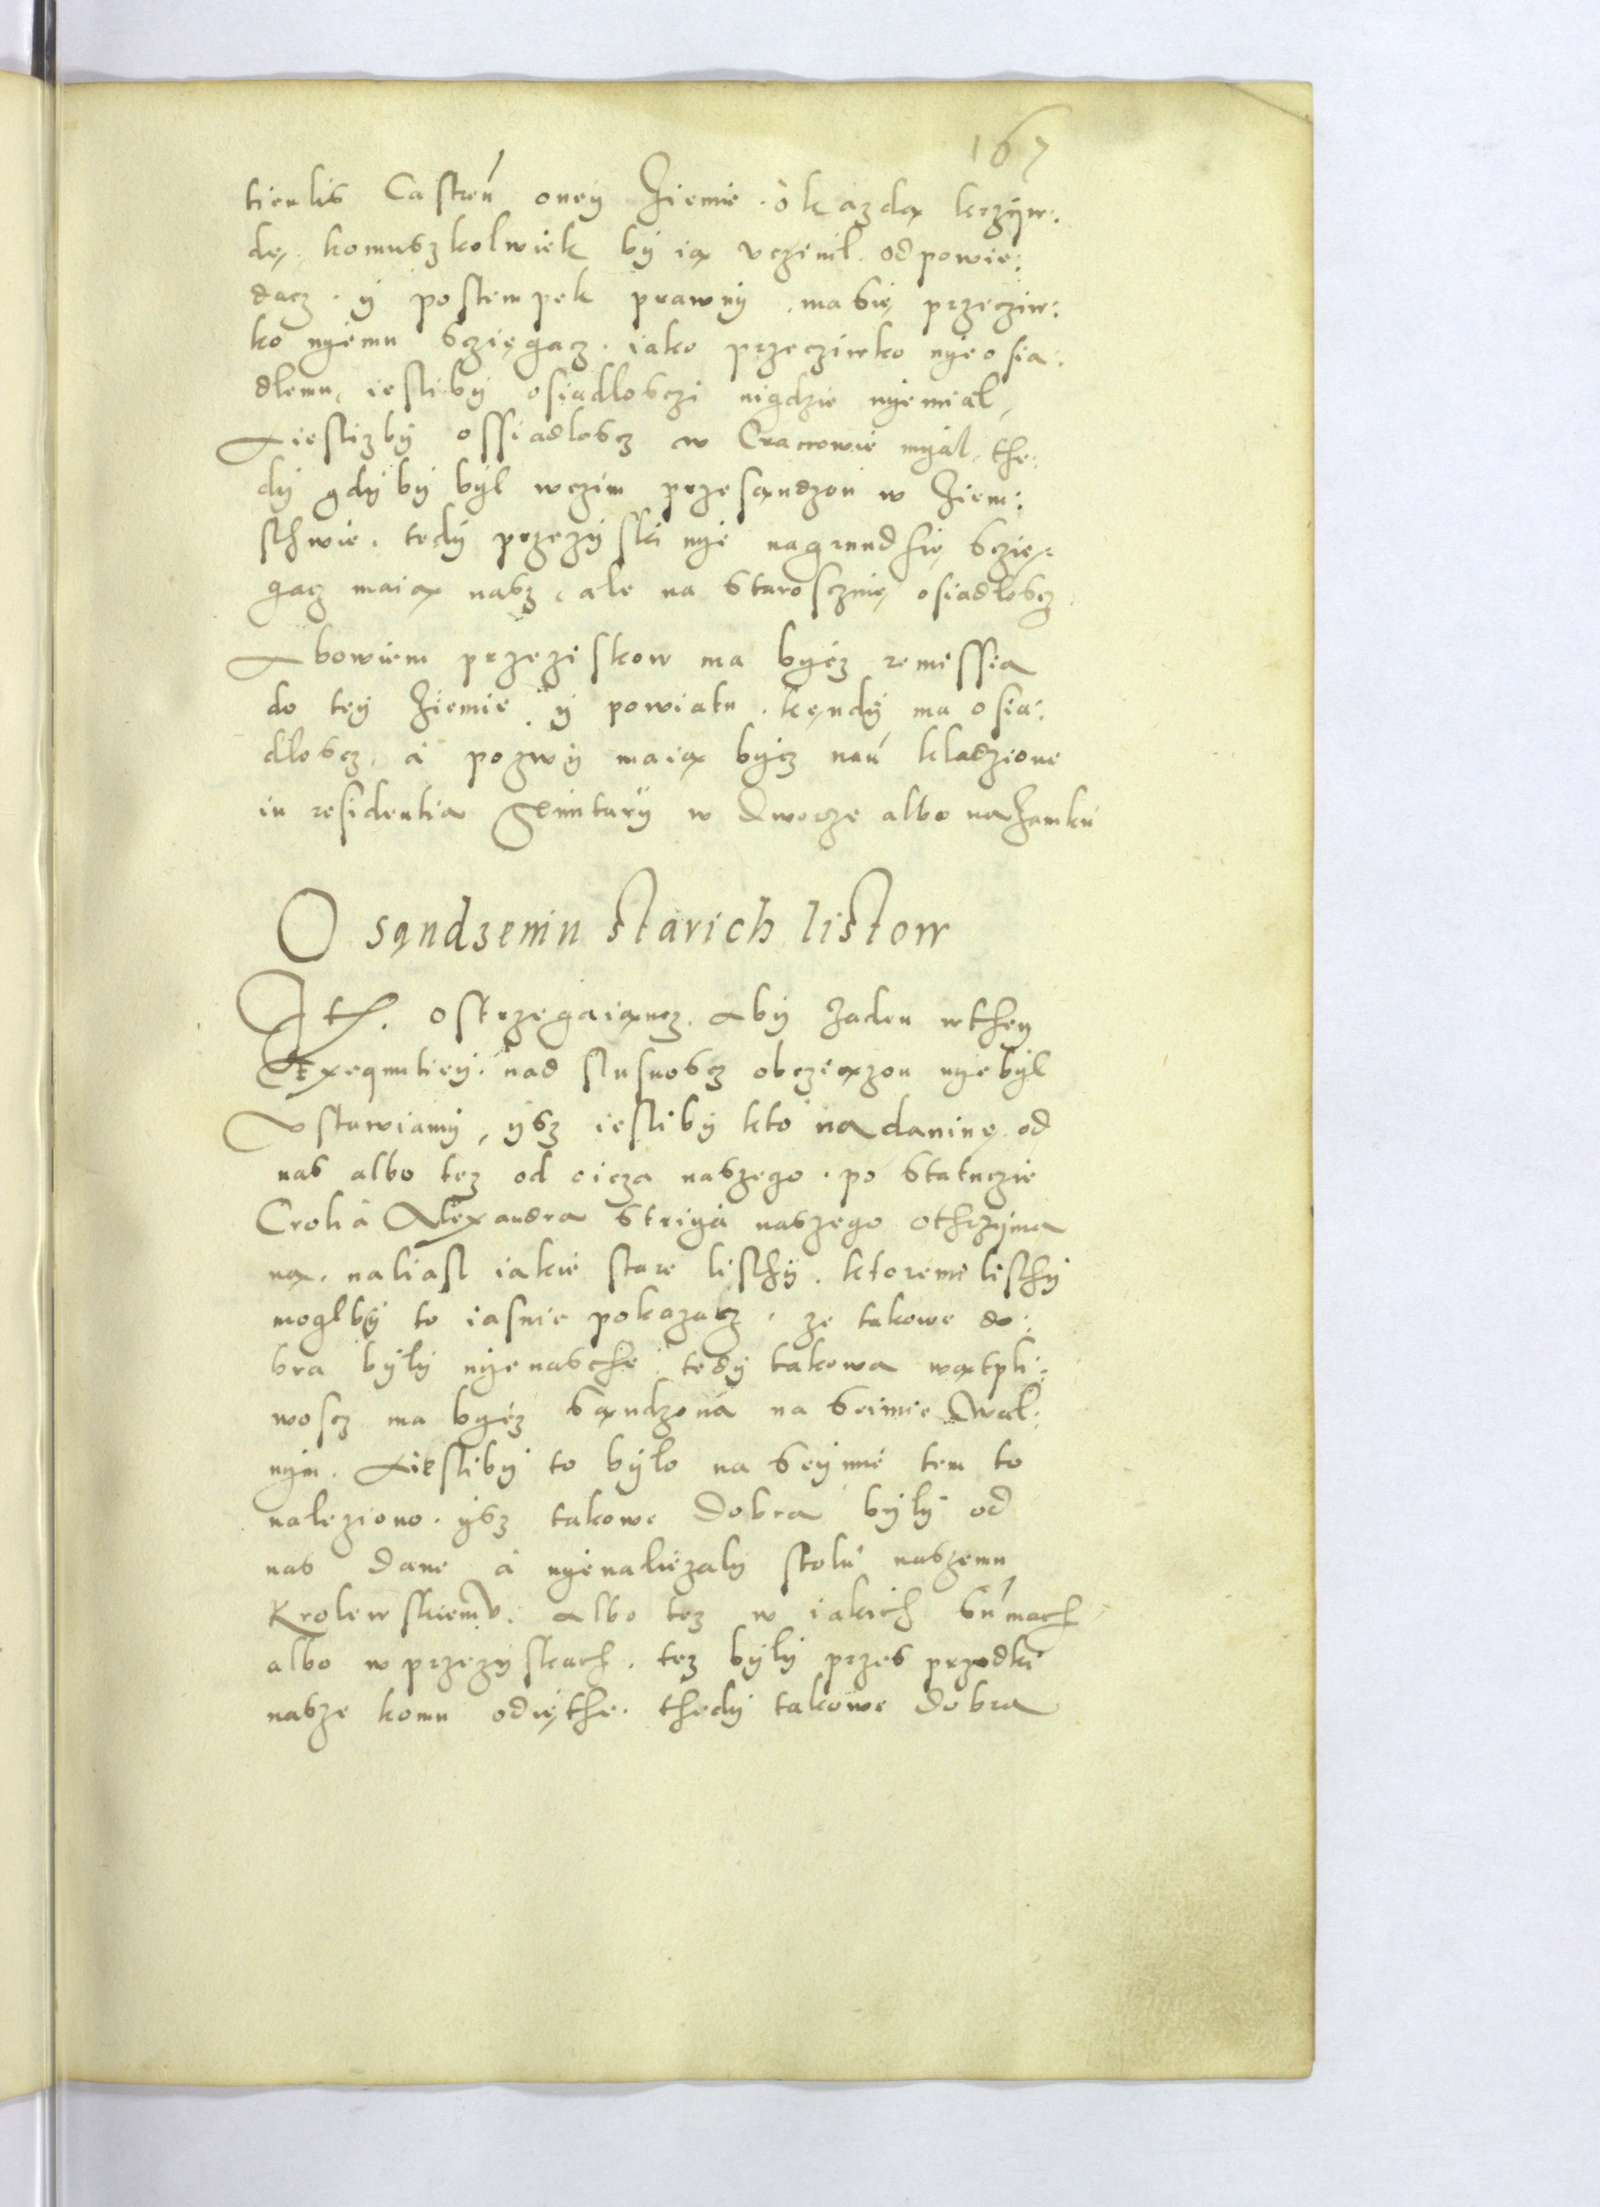 167
ticulis Castreń oney Ziemie · o kazdą krzyw:
dę, komuszkolwiek by ią vczinil. odpowie:
dacz · y postempek prawny, ma się przecziw:
ko nyemu sczięgacz · iako przecziwko nyeosia:
dlemu, iestliby osiadlosczi nigdzie nyemial,
A iestlizby ossiadloscz w Cracowie myal, the:
dy gdyby byl wczim przesąndzon w Ziem:
sthwie, tedy przezyski nye nagrund się sczię:
gacz maią nasz, ale na Starosczinę osiadłoscz
Abowiem przeziskow ma bycz remissia
do tey Ziemie y powiatu, kęndy ma osia:
dloscz, a pozwy maią bycz nań kladzione
in residentia Gennitury w Dworze albo na Zamku
O sąndzeniu starich listow
Ith. ostrzegaiąncz, Aby zaden wthey
Exequutiey, nad slusnoscz obcziązon nyebyl
Vstawiamy, ysz iestliby kto na daninę od
nas albo tez od oicza naszego · po Statuczie
Crolia Alexandra Striya naszego othrzyma
ną, naliasl iakie stare listhy, ktoremi listhy
moglby to iasnie pokazacz, ze takowe do:
bra byly nyenasche, tedy takowa wątpli:
woscz ma bycz sąndzona na Seimie Wal:
nym. A iestliby to bylo na Seymie tem to
naleziono · ysz takowe Dobra byly od
nas Dane a nyenaliezaly stolu naszemu
Krolewskiemv. Albo tez w iakich Sumach
albo w przezyskach, tez byly przes przodki
nasze komu odięthe · thedy takowe Dobra